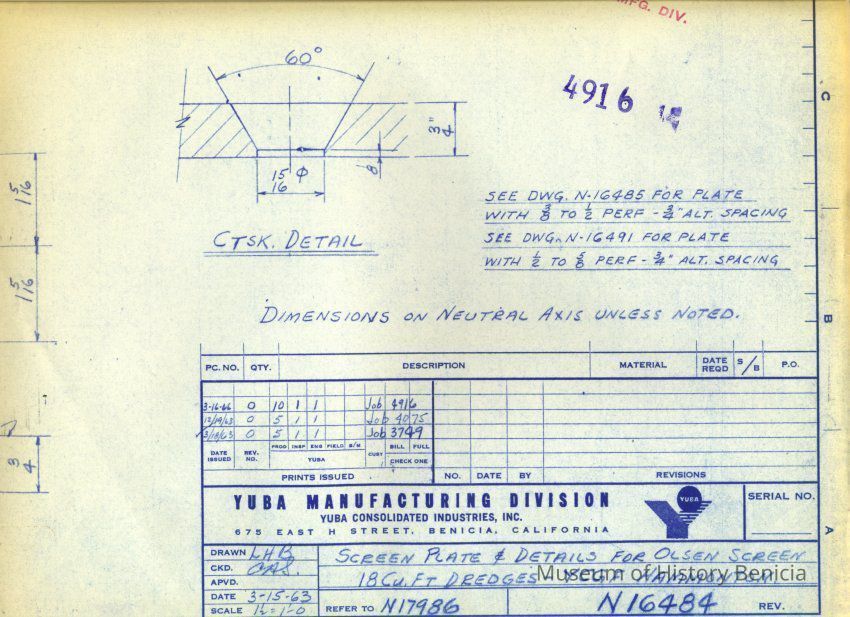 MFG. DIV.
60°
4916
C
3/4
1/8
15/16 ϕ
1 5/16
1 5/16
3/4
CTSK. DETAIL
SEE DWG. N-16485 FOR PLATE
WITH 3/8 TO 1/2 PERF - 3/4" ALT. SPACING
SEE DWG. N-16491 FOR PLATE
WITH 1/2 TO 5/8 PERF - 3/4" ALT. SPACING
DIMENSIONS ON NEUTRAL AXIS UNLESS NOTED.
B
PC. NO. QTY. DESCRIPTION MATERIAL DATE REQD S/B P.O.
3-16-66 0 10 1 1 Job 4916
12/19/63 0 5 1 1 Job 4075
3/18/63 0 5 1 1 Job 3749
DATE ISSUED REV. NO. PROD INSP ENG FIELD S/M YUBA CUST BILL FULL CHECK ONE
PRINTS ISSUED NO. DATE BY REVISIONS
YUBA MANUFACTURING DIVISION
YUBA CONSOLIDATED INDUSTRIES, INC.
675 EAST H STREET, BENICIA, CALIFORNIA
YUBA
SERIAL NO.
A
DRAWN LHB
CKD. CAS.
APVD.
DATE 3-15-63
SCALE 1½=1-0
SCREEN PLATE & DETAILS FOR OLSEN SCREEN
18 CU. FT DREDGES YCGF HAMMONTON
Museum of History Benicia
REFER TO N17986
N16484 REV.